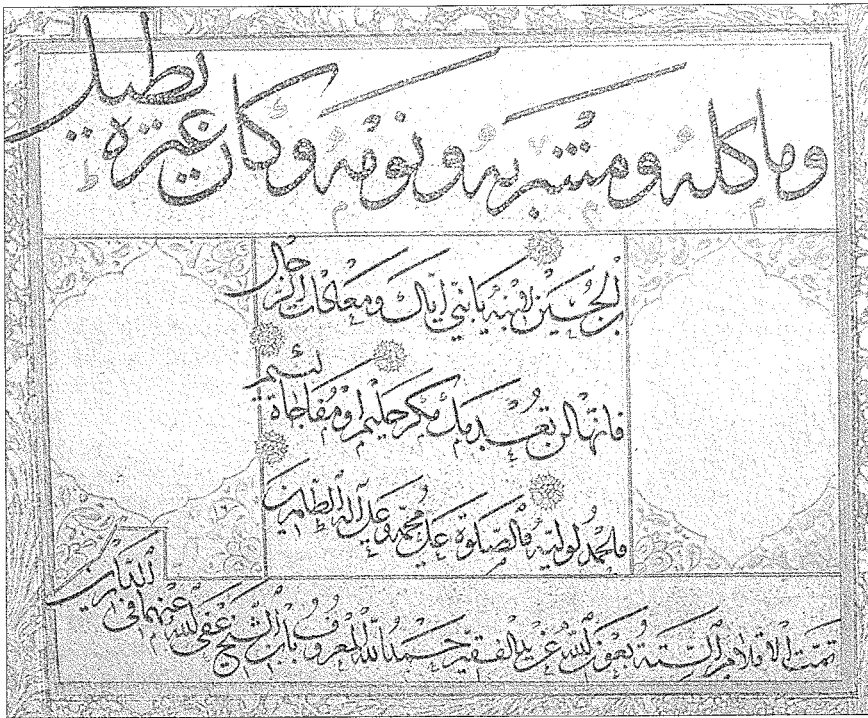 وما كله ومشربه ونومه وكان غيره يطيل
بن الحسين لابنه يا بني اياك ومعادات الرجال
فانها لن تعدمك مكر حليم او مفاجاة لئيم
والحمد لوليه والصلوة على محمد وعلى آله الطاهرين
تمت الاقلام الستة بعون الله على يد الفقير حمد الله المعروف بابن الشيخ عفى الله عنهما فى الدارين